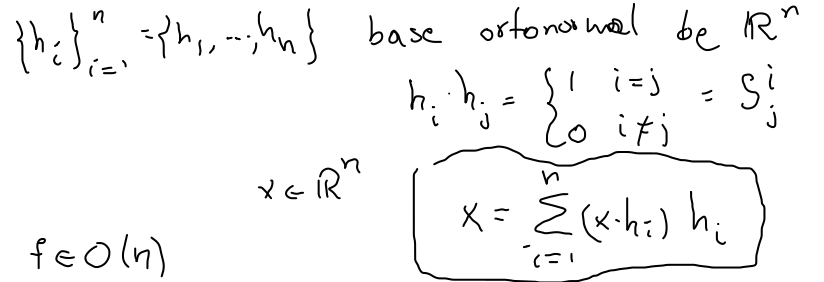 {h_i}_{i=1}^n = {h_1, ..., h_n} base ortonormal be ℝ^n
h_i · h_j = { 1 i=j
0 i≠j = δ_j^i
x ∈ ℝ^n
x = ∑_{i=1}^n (x·h_i) h_i
f ∈ O(n)